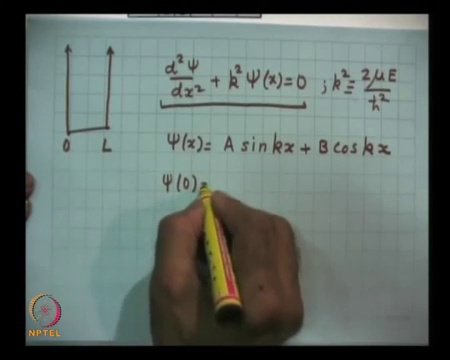 d²Ψ/dx² + k²Ψ(x)=0 ; k² ≡ 2μE/ħ²
Ψ(x)= A sinkx + B coskx
O L
Ψ(0)=
NPTEL